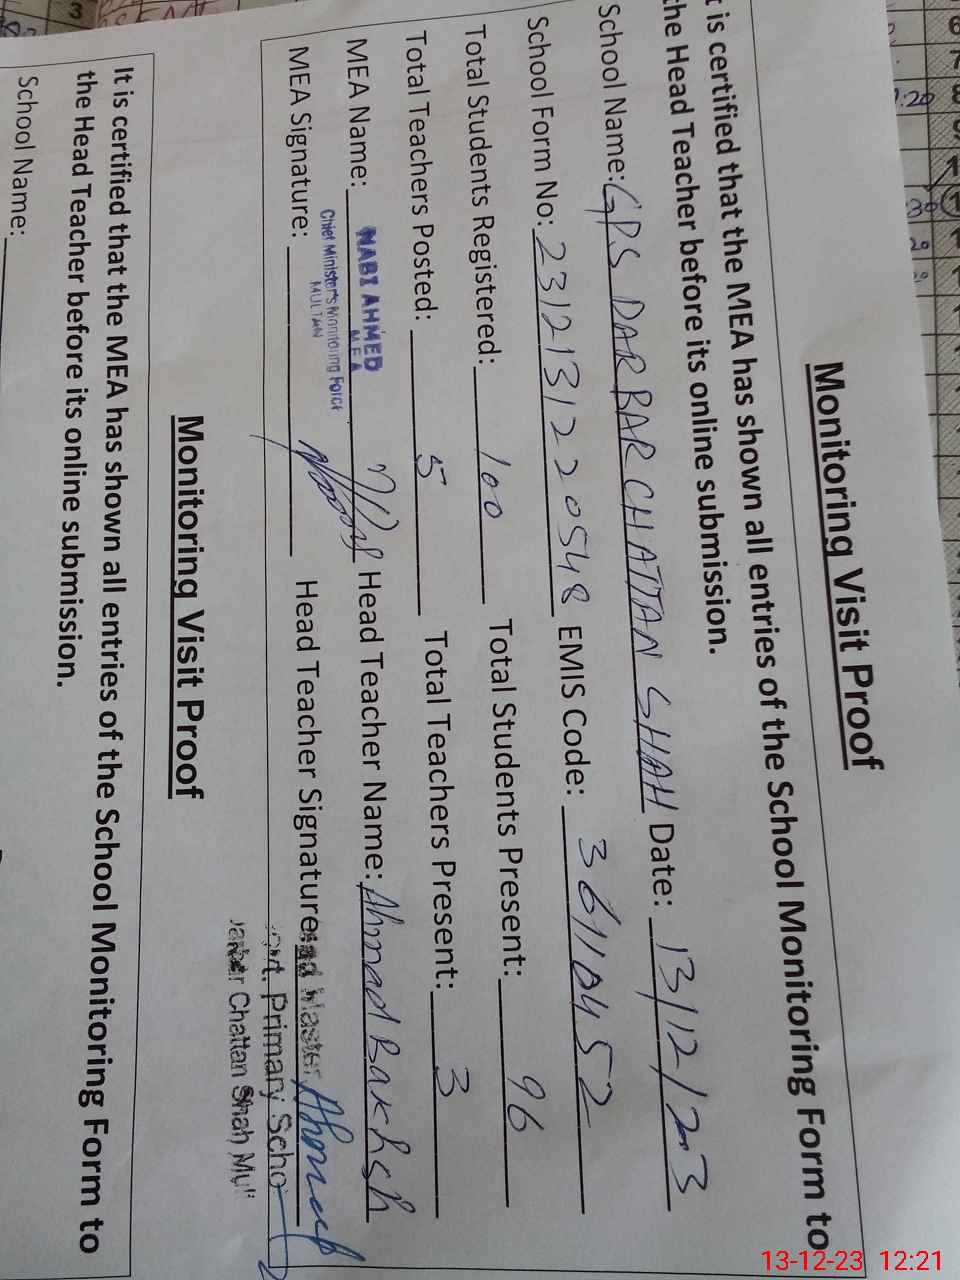 Monitoring Visit Proof
t is certified that the MEA has shown all entries of the School Monitoring Form to
the Head Teacher before its online submission.
School Name: GPS DARBAR CHATTAN SHAH Date: 13/12/23
School Form No: 2312131220548 EMIS Code: 36110452
Total Students Registered: 100 Total Students Present: 96
Total Teachers Posted: 5 Total Teachers Present: 3
MEA Name: NABI AHMED Head Teacher Name: Ahmad Bakhsh
MEA
Chief Minister's Monitoring Force
MULTAN
MEA Signature: Head Teacher Signature: Master Ahmad
Primary Scho
Chattan Shah Mul
Monitoring Visit Proof
It is certified that the MEA has shown all entries of the School Monitoring Form to
the Head Teacher before its online submission.
School Name:
13-12-23 12:21